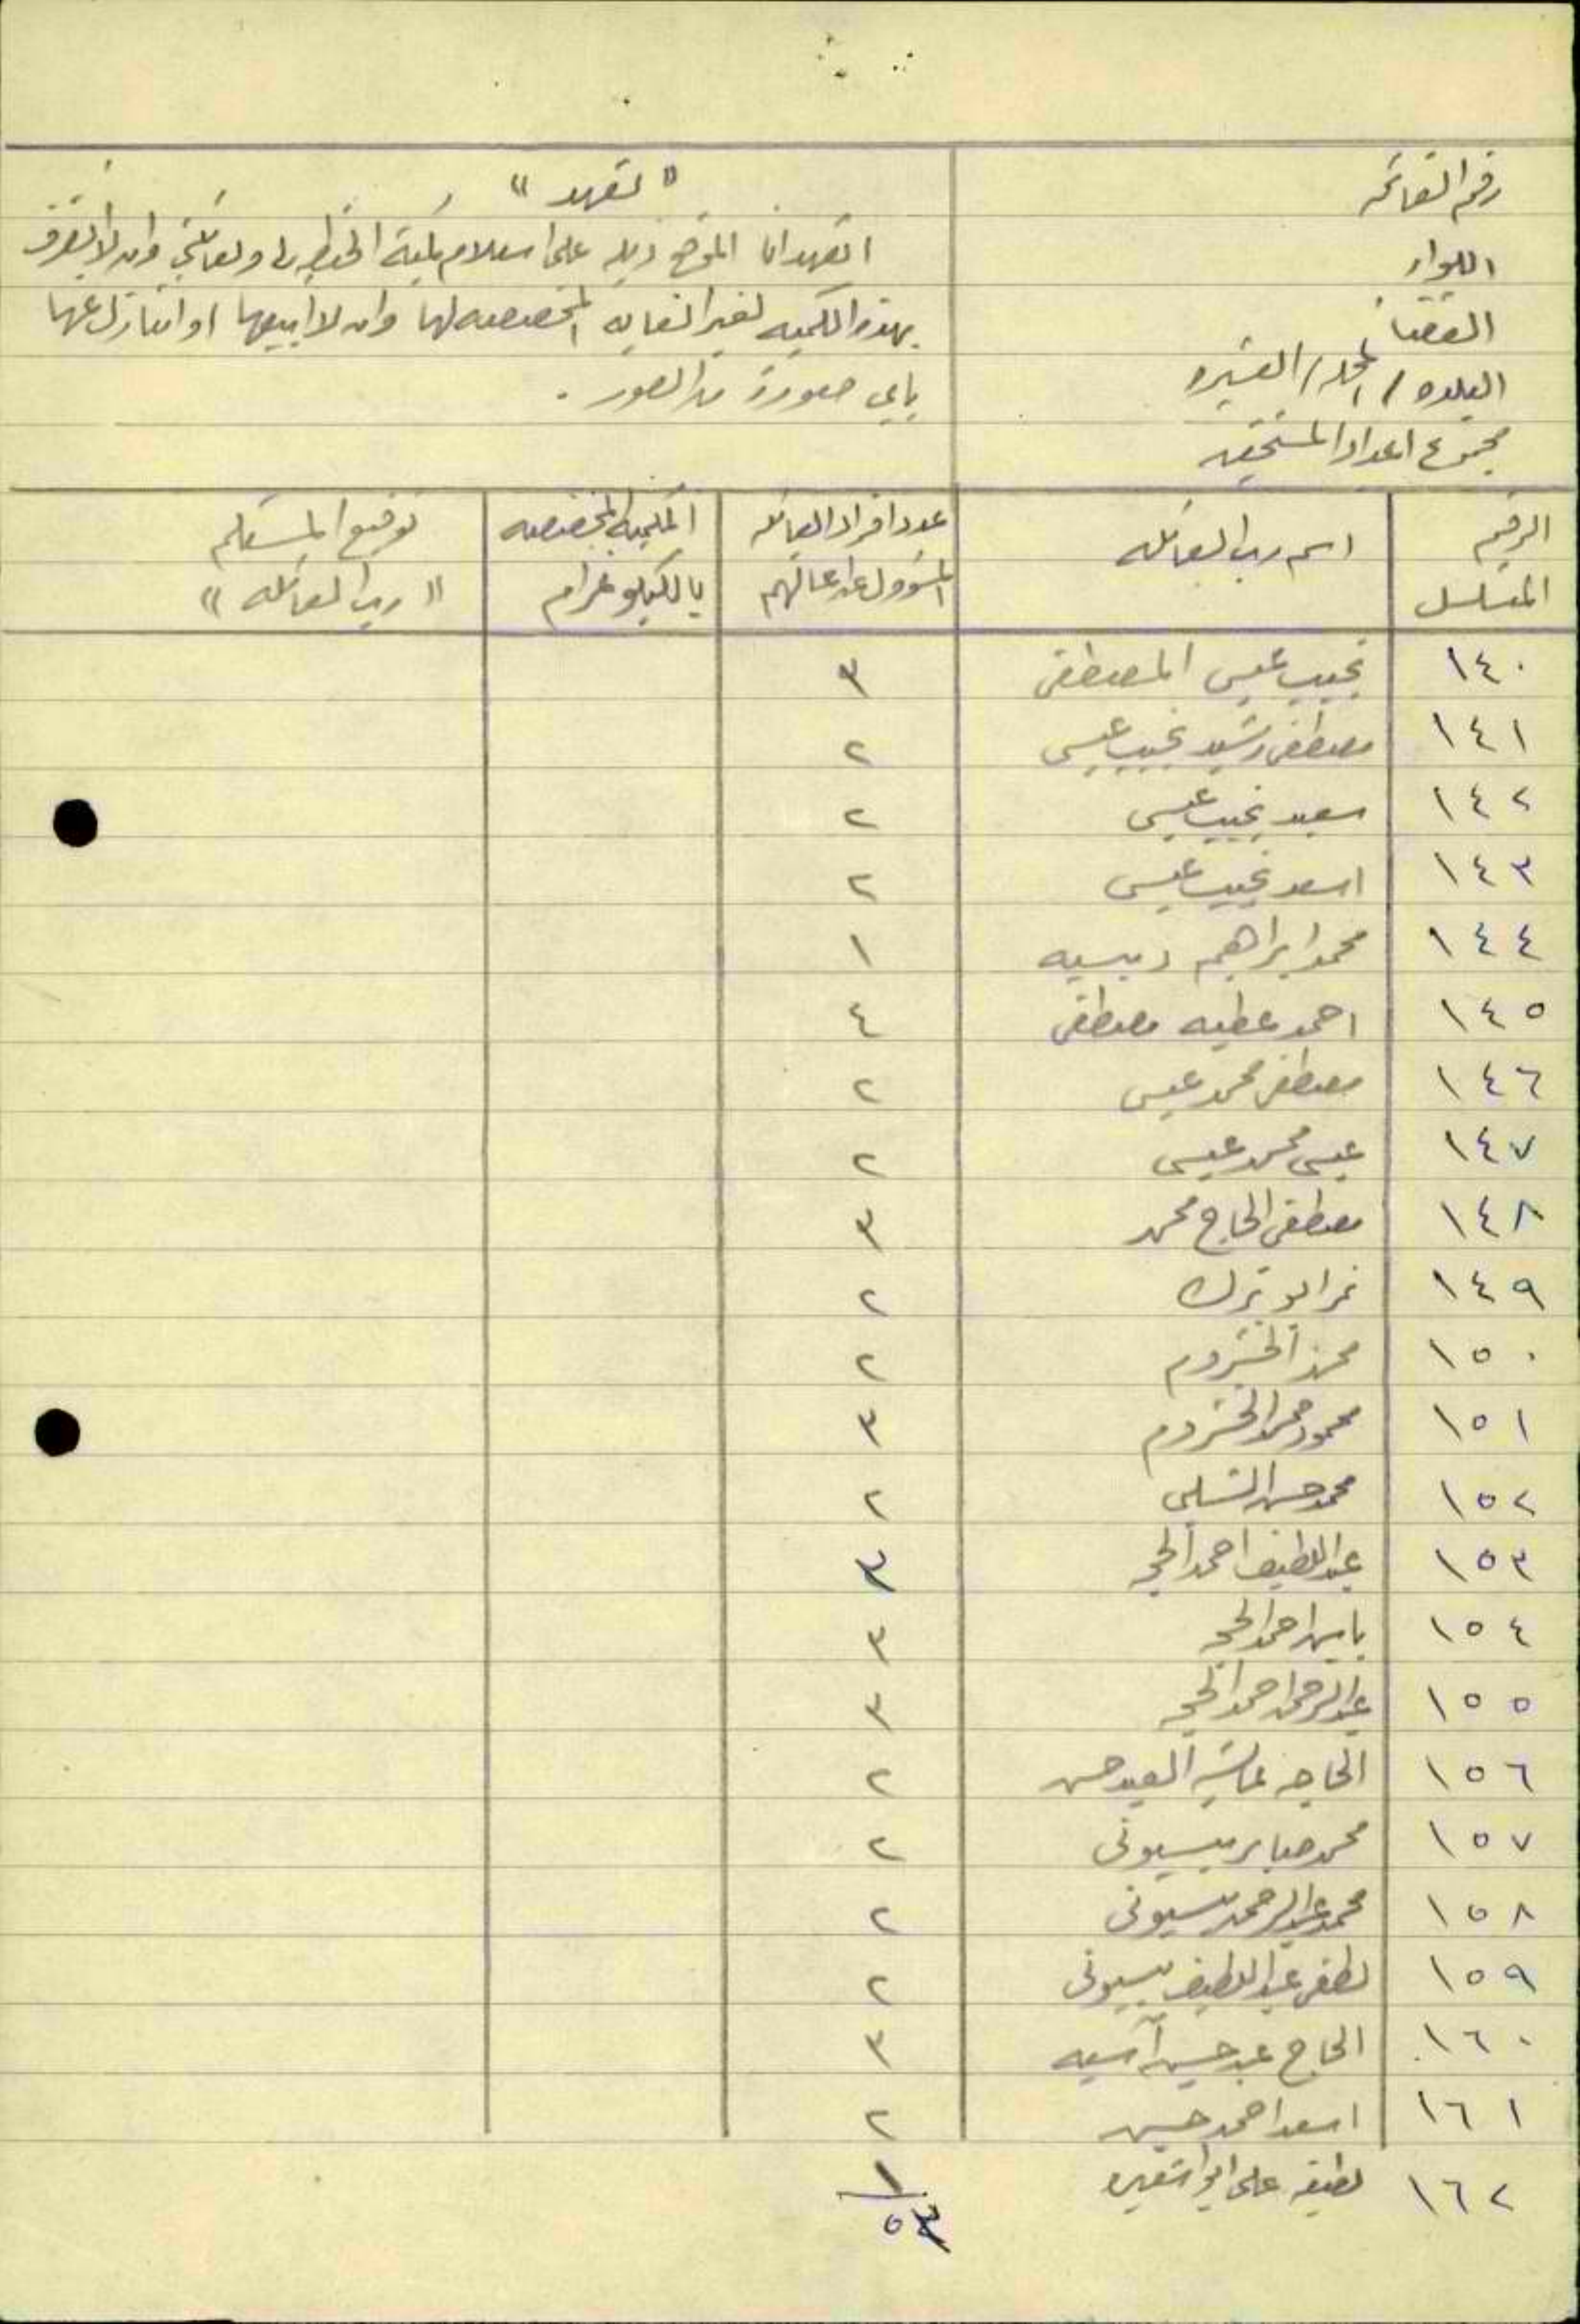 رقم القائمة
اللواء
القضاء
البلده / المحله / العشيره
مجموع اعداد المستحقين
" تعهد "
اتعهد انا الموقع ذيله على استلام كمية الحنطه لي ولعائلتي وان لا اتصرف
بهذه الكميه لغير الغايه المخصصه لها وان لا ابيعها او اتنازل عنها
باي صورة من الصور .
الرقم المتسلسل
اسم رب العائله
عدد افراد العائله المسؤول عن اعالتهم
الكميه المخصصه بالكيلو غرام
توقيع المستلم " رب العائله "
١٤٠ نجيب عيسى المصطفى ٣
١٤١ مصطفى رشيد نجيب عيسى ٢
١٤٢ سعيد نجيب عيسى ٢
١٤٣ اسعد نجيب عيسى ٢
١٤٤ محمد ابراهيم دبسيه ١
١٤٥ احمد عطيه مصطفى ٤
١٤٦ مصطفى محمد عيسى ٢
١٤٧ عيسى محمد عيسى ٢
١٤٨ مصطفى الحاج محمد ٣
١٤٩ نمر ابو ترك ٢
١٥٠ محمد الخشروم ٢
١٥١ محمود محمد الخشروم ٣
١٥٢ محمد حسن الشلبي ٢
١٥٣ عبد اللطيف احمد الحج ٣
١٥٤ ياسين احمد الحج ٣
١٥٥ عبد الرحمن احمد الحج ٣
١٥٦ الحاجه عائشه العبد حسن ٢
١٥٧ محمد صابر بسيوني ٢
١٥٨ محمد عبد الرحمن بسيوني ٢
١٥٩ لطفي عبد اللطيف بسيوني ٢
١٦٠ الحاج عبد حسين آسيه ٣
١٦١ اسعد احمد حسين ٢
١٦٢ لطيفه علي ابو اشقير ١
٥٣